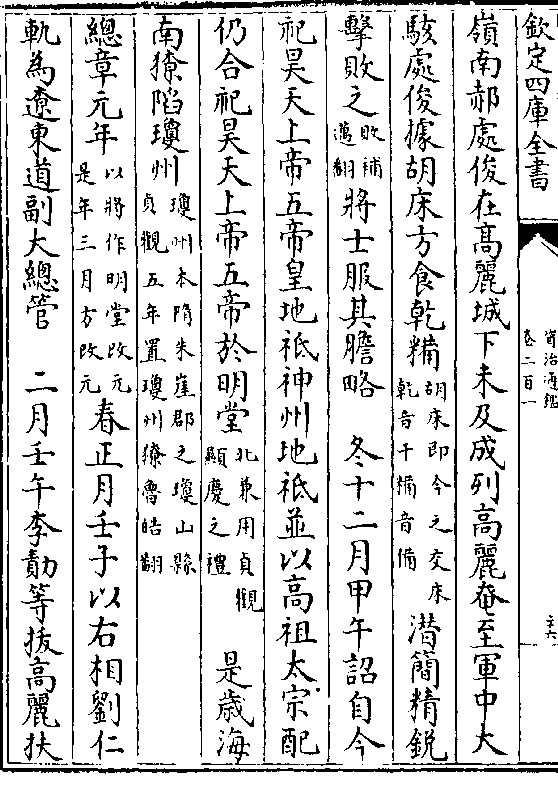 欽定四庫全書
資治通鑑
卷二百一
嶺南郝處俊在髙麗城下未及成列高麗奄至軍中大
駭處俊據胡床方食乾糒胡床即今之交床乾音干糒音備潜簡精鋭
擊敗之敗補邁翻將士服其膽略　冬十二月甲午詔自今
祀昊天上帝五帝皇地祇神州地祇並以高祖太宗配
仍合祀昊天上帝五帝於明堂北兼用貞觀顯慶之禮　是歳海
南獠陷瓊州瓊州本隋朱崖郡之瓊山縣貞觀五年置瓊州獠魯皓翻
總章元年以將作明堂改元是年三月方改元春正月壬子以右相劉仁
軌為遼東道副大總管　二月壬午李勣等拔高麗扶